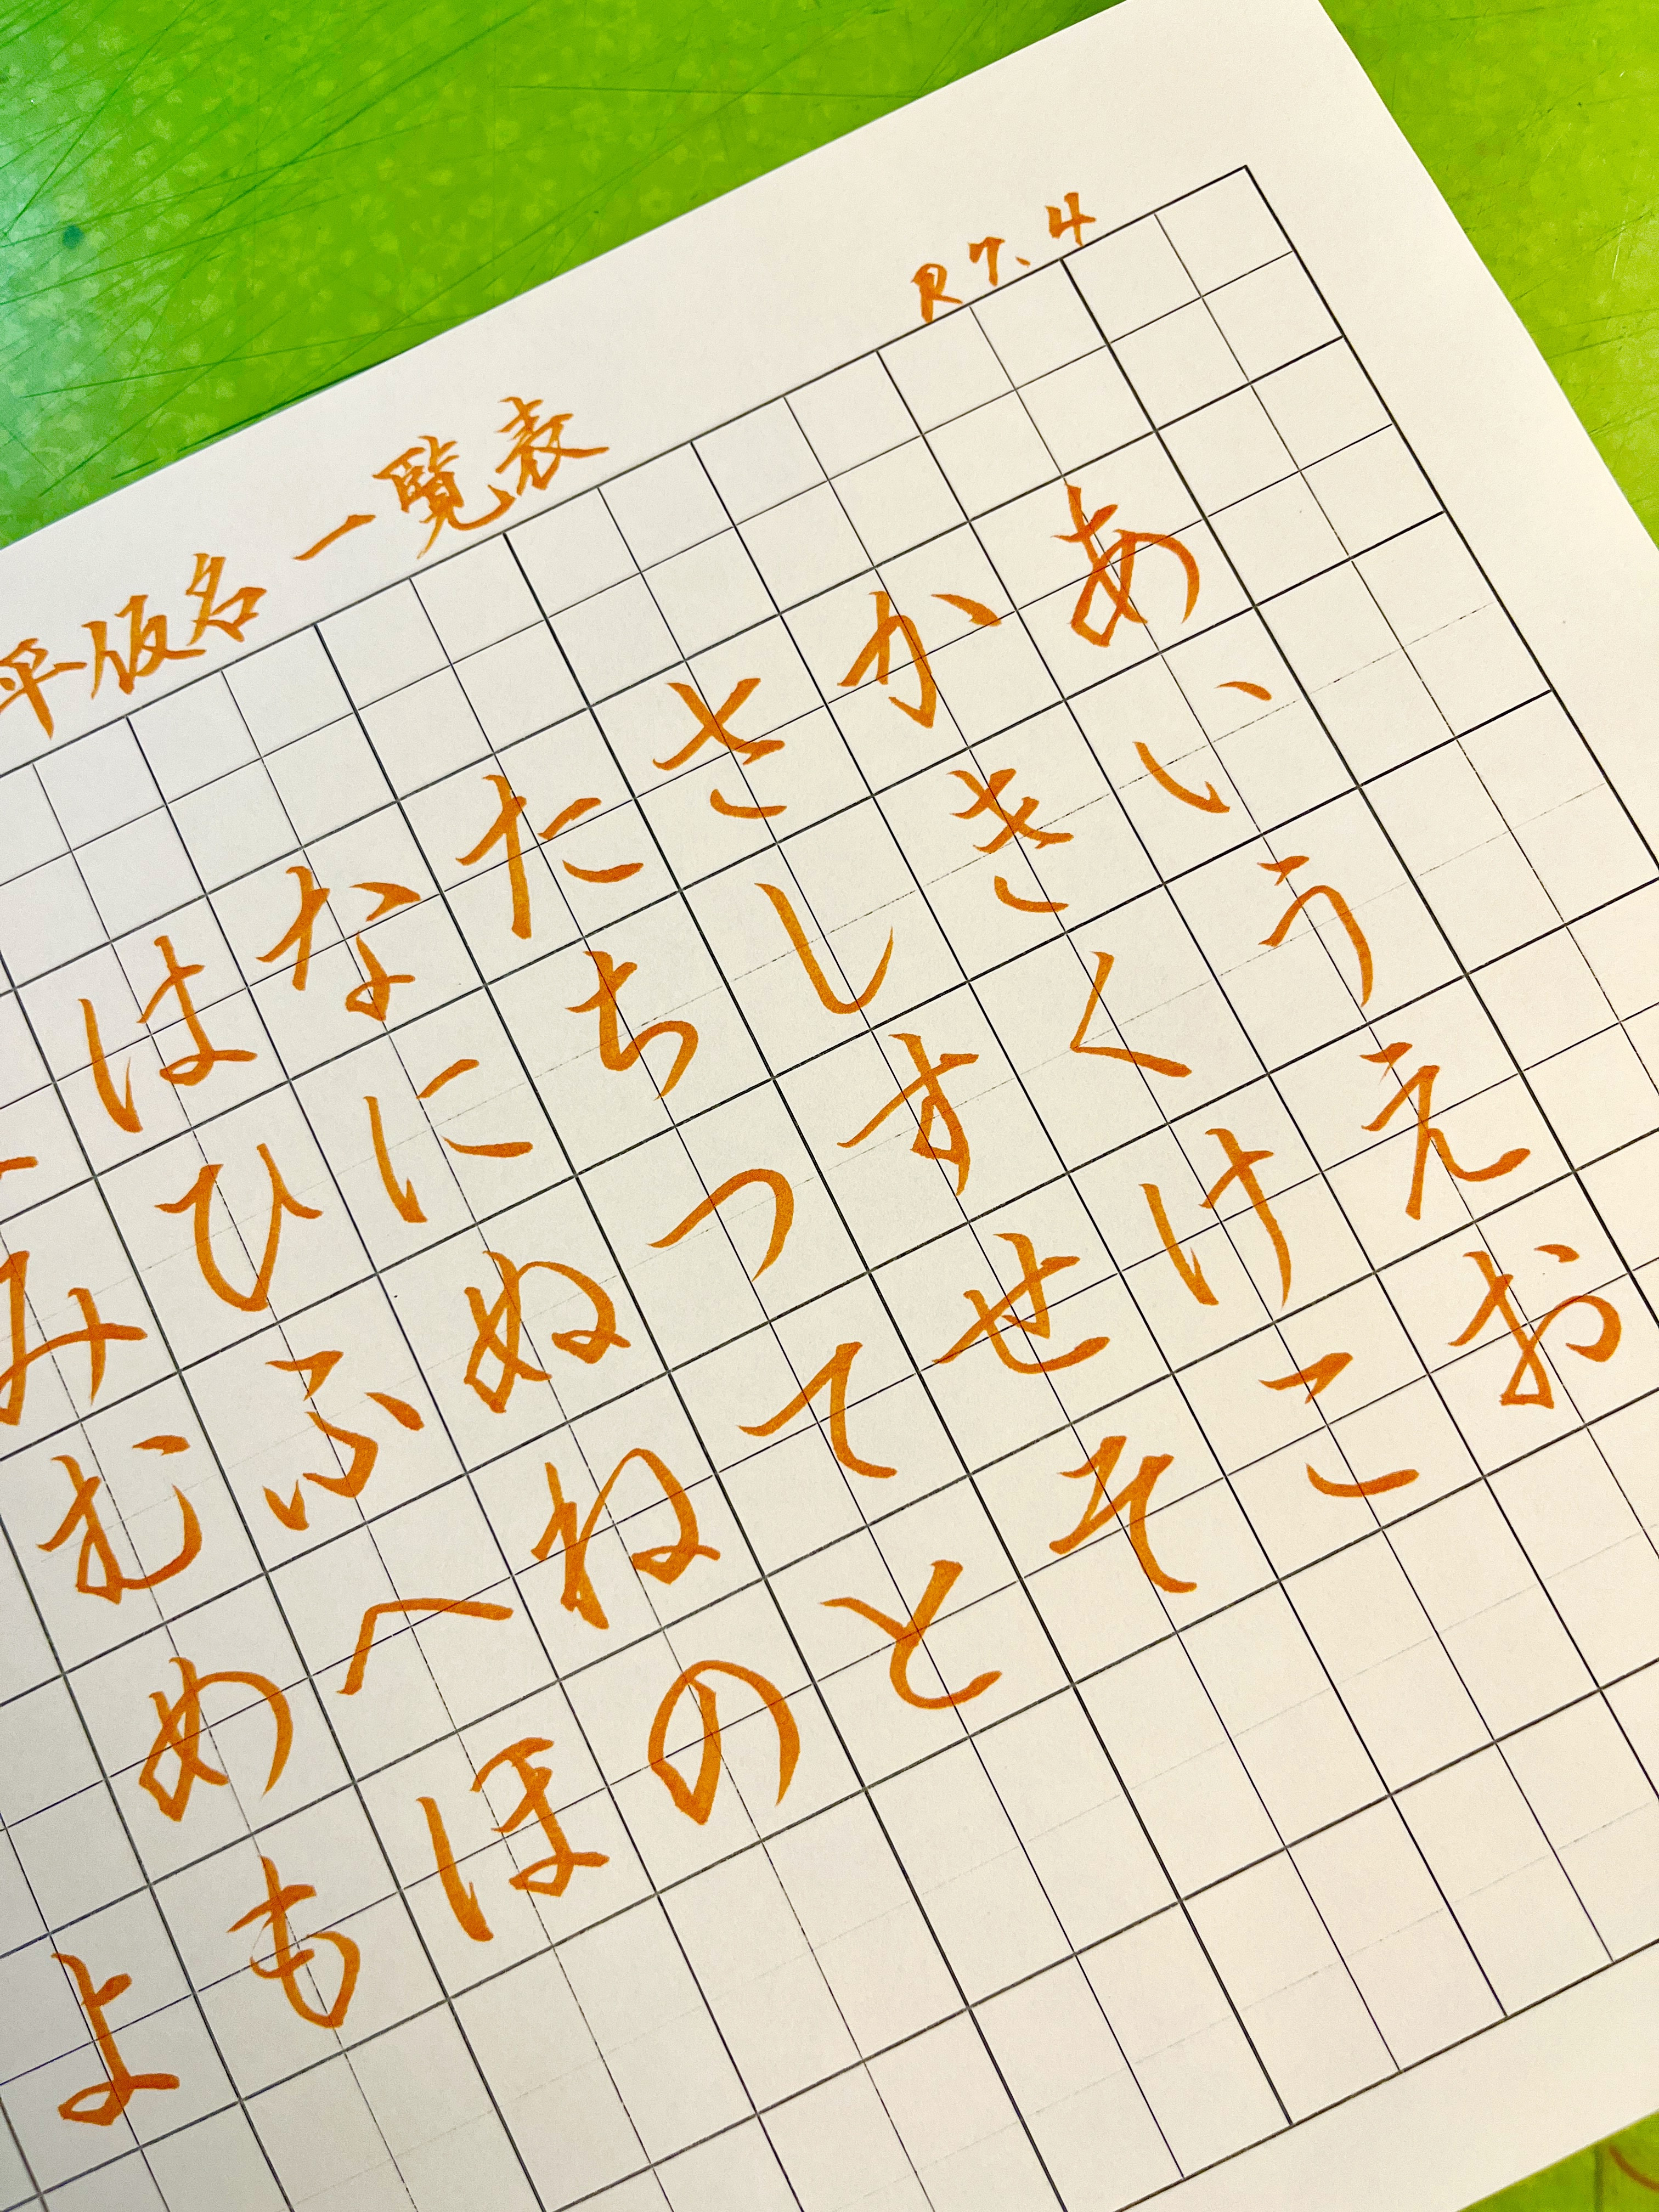 R7.4
平仮名一覧表
あいうえお
かきくけこ
さしすせそ
たちつてと
なにぬねの
はひふへほ
みむめも
よ